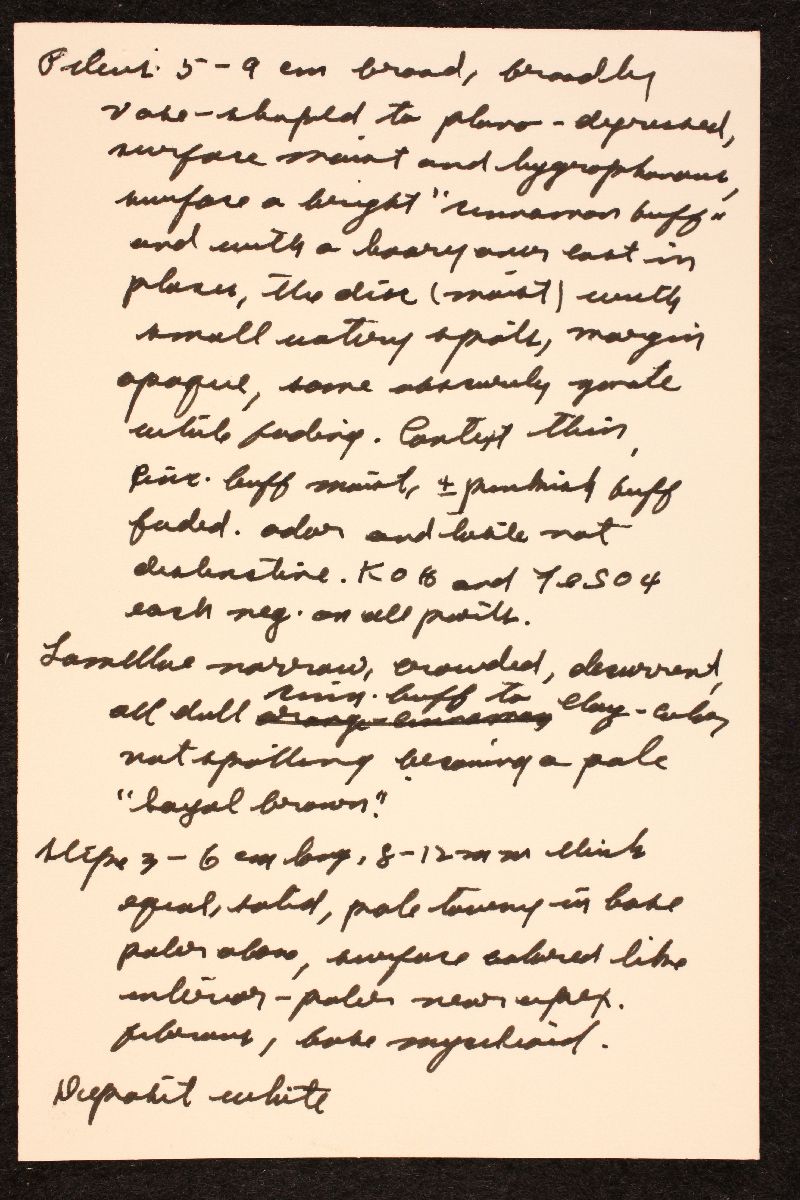 Pileus 5-9 cm broad, broadly
vase-shaped to plano-depressed,
surface moist and hygrophanous,
surface a bright "cinnamon buff"
and with a hoary over cast in
places, the disc (moist) with
small watery spots, margin
opaque, some obscurely zonate
while fading. Context thin,
pink. buff moist, ± pinkish buff
faded. odor and taste not
distinctive. KOH and FeSO4
each neg. on all parts.
Lamellae narrow, crowded, decurrent,
cinn. buff to
all dull orange-cinnamon clay-color,
not spotting becoming a pale
"Sayal brown."
Stipe 3-6 cm long, 8-12 mm thick
equal, solid, pale tawny in base
paler above, surface colored like
interior - paler near apex.
fibrous, base mycelioid.
Deposit white